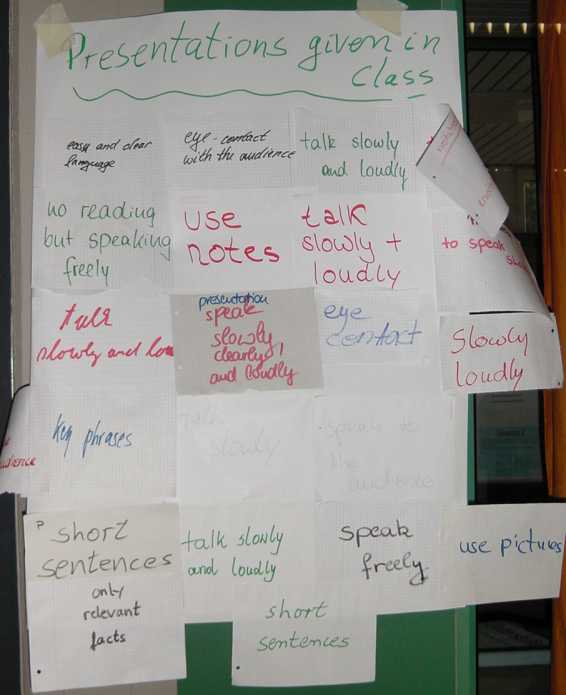 Presentations given in
Class
easy and clear
language
eye-contact
with the audience
talk slowly
and loudly
no reading
but speaking
freely
use
notes
talk
slowly +
loudly
to speak
talk
slowly and lou
presentation
speak
slowly
clearly
and loudly
eye
contact
slowly
loudly
key phrases
Talk
slowly
speak to
the
audience
udience
P
short
sentences
only
relevant
facts
talk slowly
and loudly
speak
freely
use pictures
short
sentences